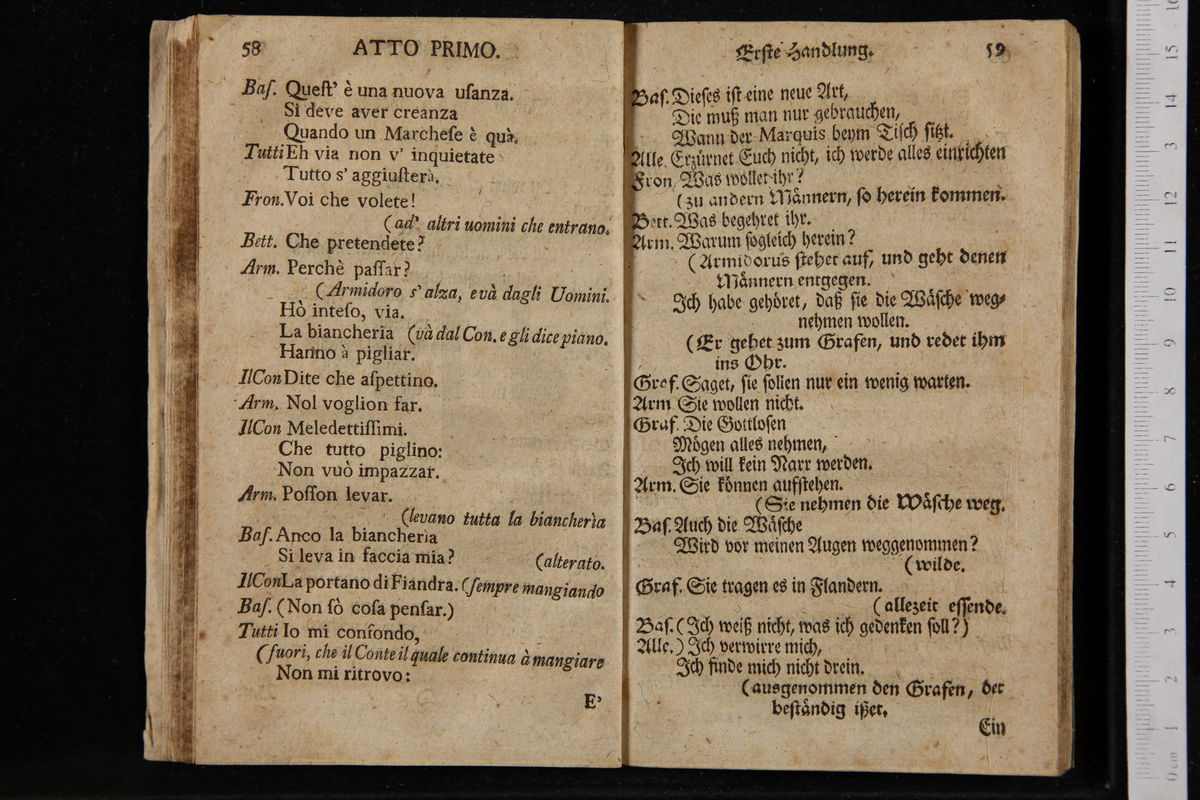 58 ATTO PRIMO.
Baſ. Queſt' è una nuova uſanza.
Si deve aver creanza
Quando un Marcheſe è quà.
Tutti Eh via non v' inquietate
Tutto s' aggiuſterà.
Fron. Voi che volete!
(ad' altri uomini che entrano.
Bett. Che pretendete?
Arm. Perchè paſſar?
(Armidoro s' alza, e và dagli Uomini.
Hò inteſo, via.
La biancheria (và dal Con. e gli dice piano.
Hanno à pigliar.
Il Con Dite che aſpettino.
Arm. Nol voglion far.
Il Con Meledettiſſimi.
Che tutto piglino:
Non vuò impazzar.
Arm. Poſſon levar.
(levano tutta la biancherìa
Baſ. Anco la biancherìa
Si leva in faccia mia? (alterato.
Il Con La portano di Fiandra. (ſempre mangiando
Baſ. (Non ſò coſa penſar.)
Tutti Io mi confondo,
(fuori, che il Conte il quale continua à mangiare
Non mi ritrovo:
E'
Erſte Handlung. 59
Baſ. Dieſes iſt eine neue Art,
Die muß man nur gebrauchen,
Wann der Marquis beym Tiſch ſitzt.
Alle. Erzürnet Euch nicht, ich werde alles einrichten
Fron. Was wollet ihr?
(zu andern Männern, ſo herein kommen.
Bett. Was begehret ihr.
Arm. Warum ſogleich herein?
(Armidorus ſtehet auf, und geht denen
Männern entgegen.
Ich habe gehöret, daß ſie die Wäſche weg-
nehmen wollen.
(Er gehet zum Grafen, und redet ihm
ins Ohr.
Graf. Saget, ſie ſollen nur ein wenig warten.
Arm. Sie wollen nicht.
Graf. Die Gottloſen
Mögen alles nehmen,
Ich will kein Narr werden.
Arm. Sie können aufſtehen.
(Sie nehmen die Wäſche weg.
Baſ. Auch die Wäſche
Wird vor meinen Augen weggenommen?
(wilde.
Graf. Sie tragen es in Flandern.
(allezeit eſſende.
Baſ. (Ich weiß nicht, was ich gedenken ſoll?)
Alle.) Ich verwirre mich,
Ich finde mich nicht drein.
(ausgenommen den Grafen, der
beſtändig ißet.
Ein